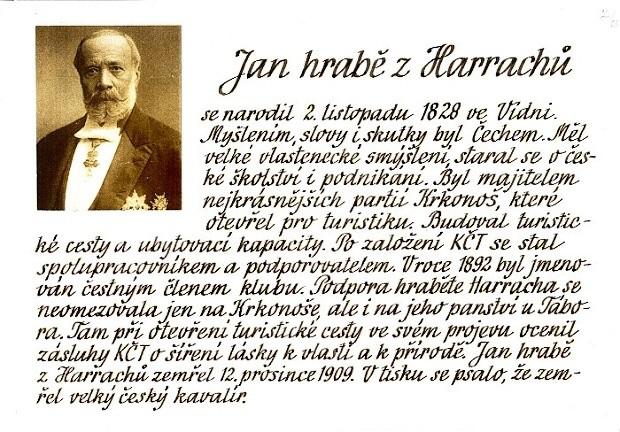 Jan hrabě z Harrachů
se narodil 2. listopadu 1828 ve Vídni.
Myšlením, slovy i skutky byl Čechem. Měl
velké vlastenecké smýšlení, staral se o čes-
ké školství i podnikání. Byl majitelem
nejkrásnějších partií Krkonoš, které
otevřel pro turistiku. Budoval turistic-
ké cesty a ubytovací kapacity. Po založení KČT se stal
spolupracovníkem a podporovatelem. V roce 1892 byl jmeno-
ván čestným členem klubu. Podpora hraběte Harracha se
neomezovala jen na Krkonoše, ale i na jeho panství u Tábo-
ra. Tam při otevření turistické cesty ve svém projevu ocenil
zásluhy KČT o šíření lásky k vlasti a k přírodě. Jan hrabě
z Harrachů zemřel 12. prosince 1909. V tisku se psalo, že zem-
řel velký český kavalír.